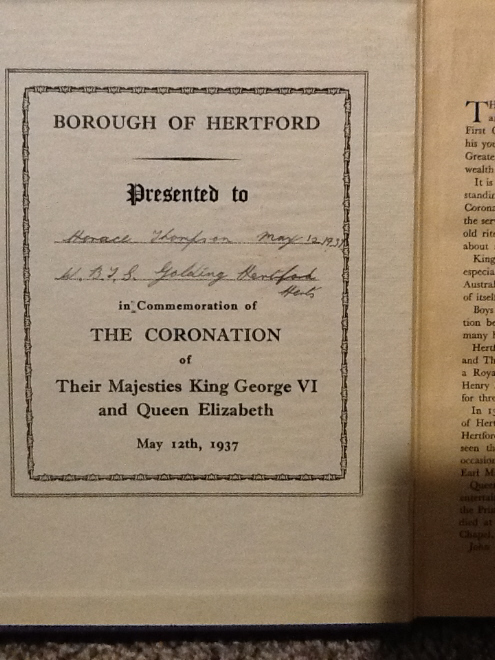 BOROUGH OF HERTFORD
Presented to
Horace Thompson May 12 1937
Golding Hertford
Herts
in Commemoration of
THE CORONATION
of
Their Majesties King George VI
and Queen Elizabeth
May 12th, 1937
First
his you
Greate
wealth
It is
standin
Corona
the ser
old rite
about
King
especia
Austral
of itsel
Boys
tion be
many
Hertf
and Th
a Roya
Henry
for thre
of Hert
Hertford
seen th
occasion
Earl M
Queen
entertai
the Prin
died at
Chapel,
John